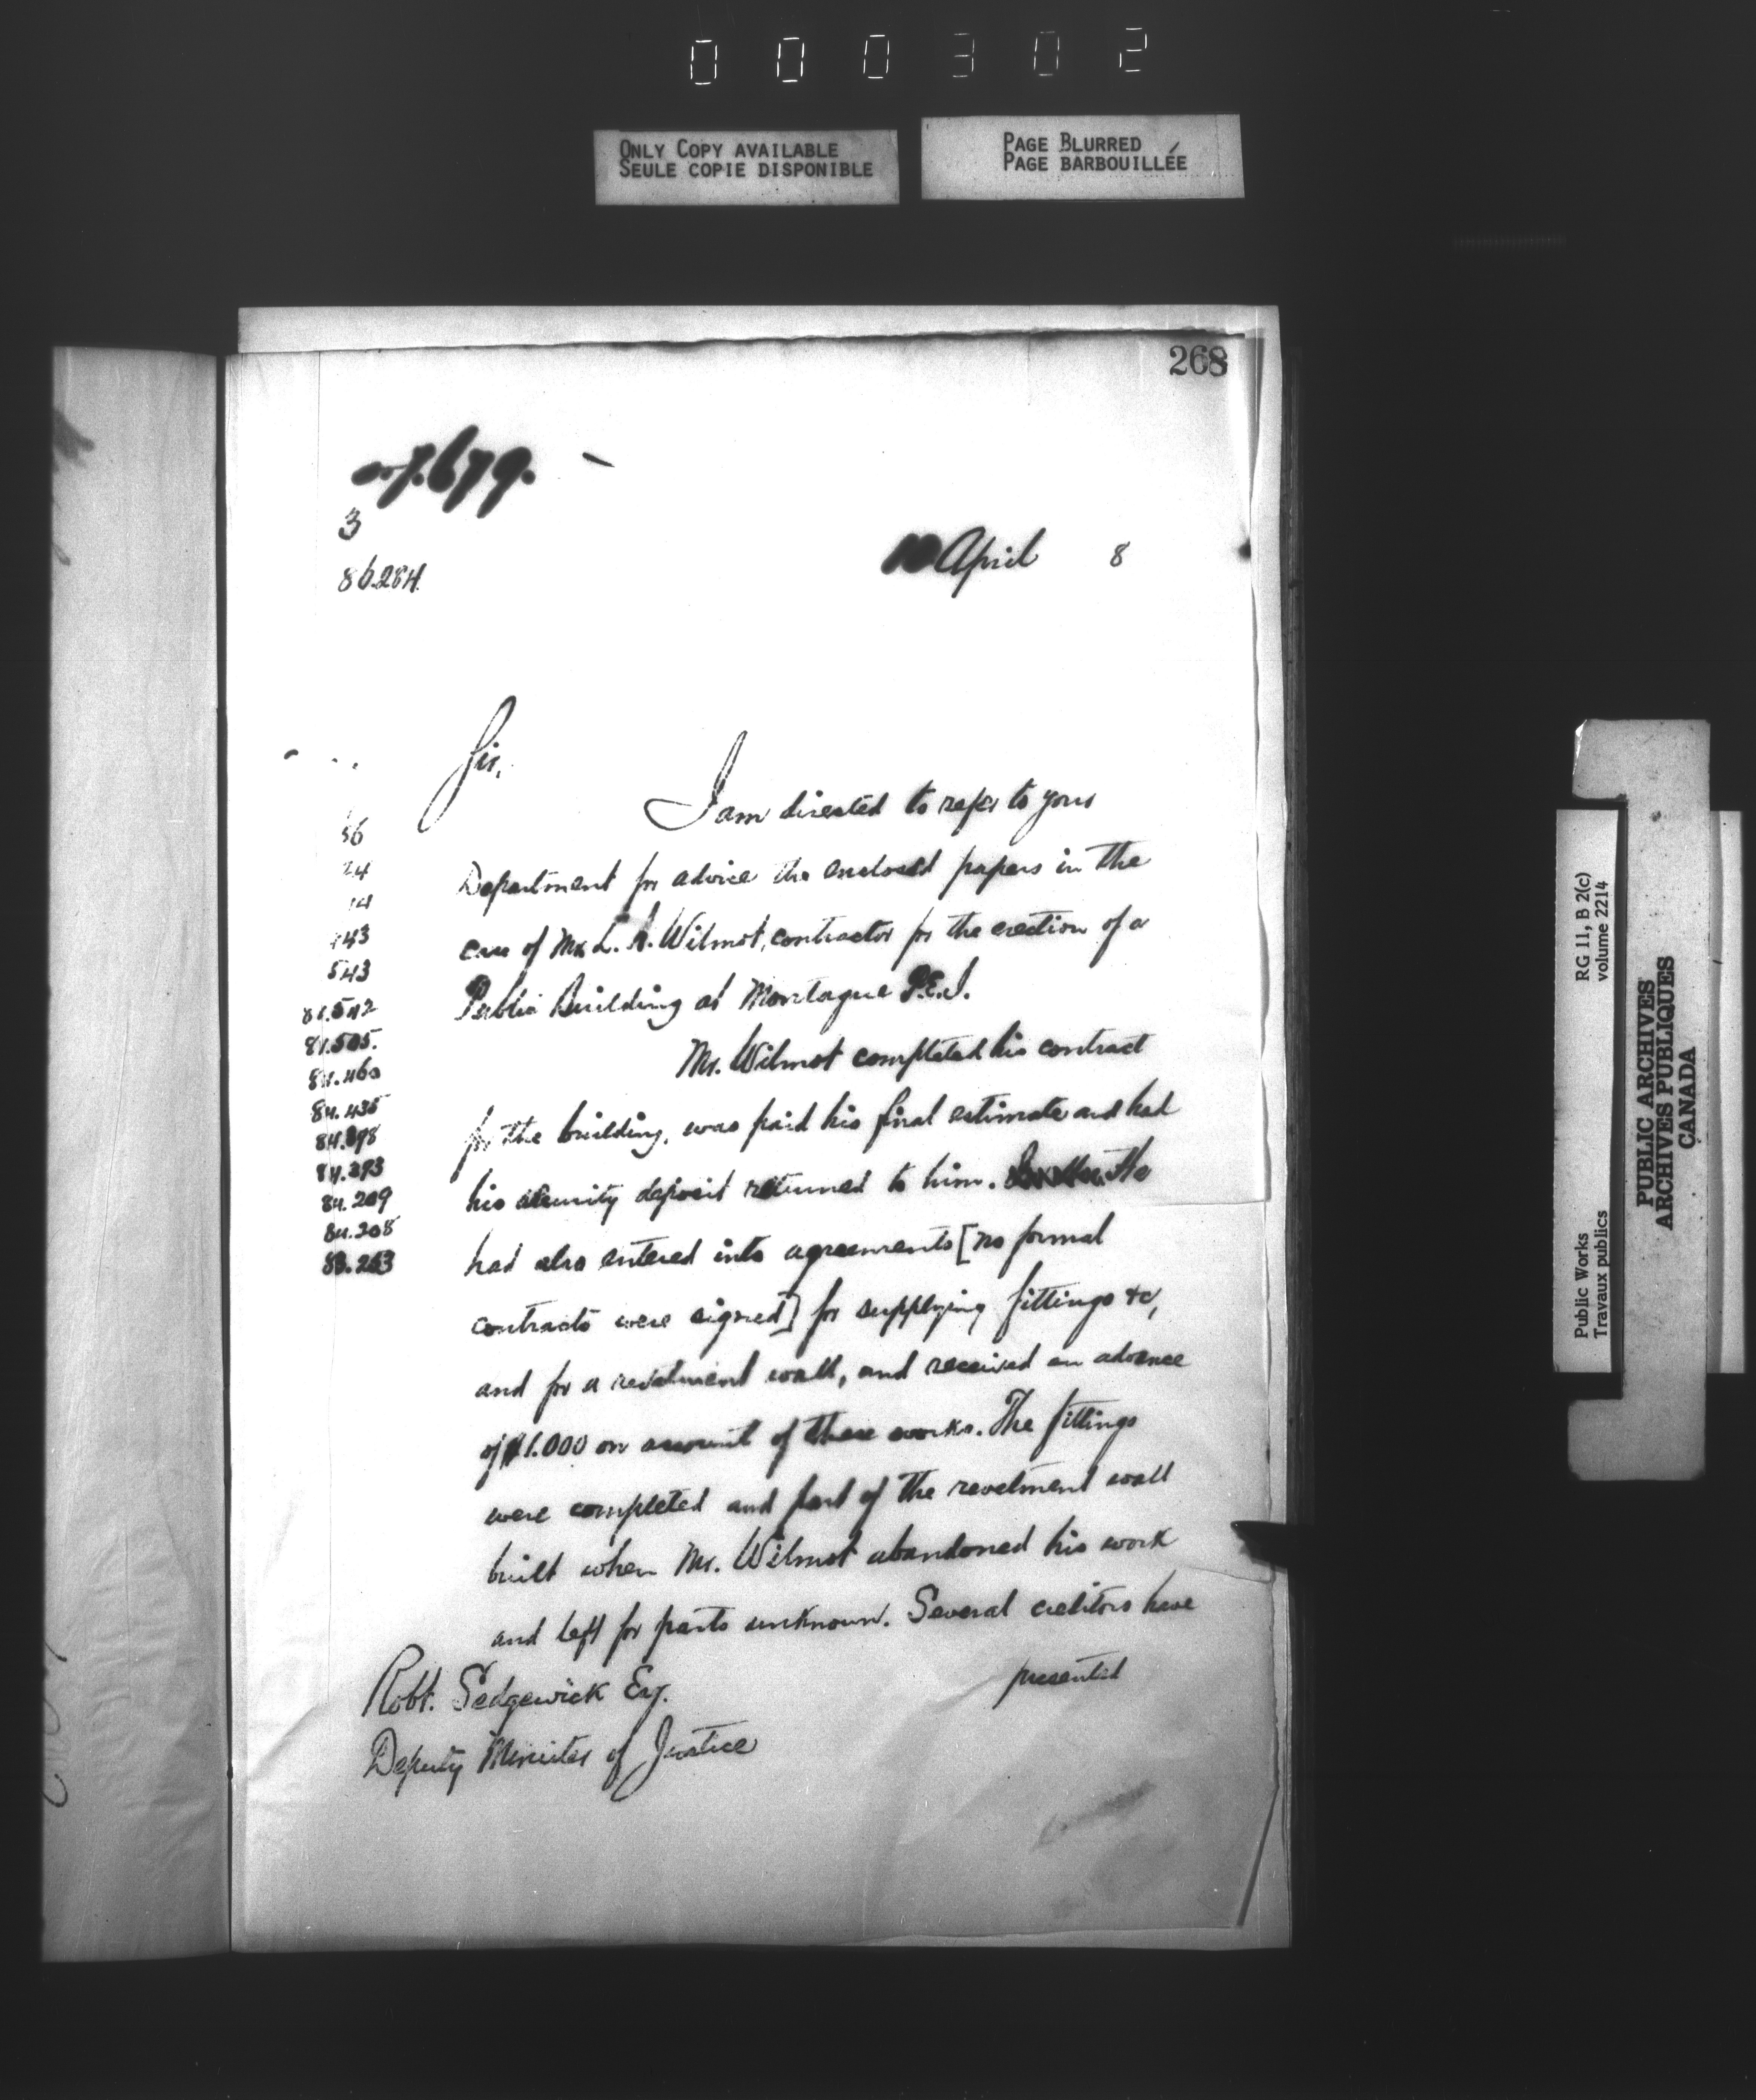 000302
ONLY COPY AVAILABLE
SEULE COPIE DISPONIBLE
PAGE BLURRED
PAGE BARBOUILLÉE
268
7.679.
3
86.284.
10 April 8
Sir,
I am directed to refer to your
Department for advice the enclosed papers in the
case of Mr. L. A. Wilmot, contractor for the erection of a
Public Building at Montague P.E.I.
Mr. Wilmot completed his contract
for the building, was paid his final estimate and had
his security deposit returned to him. He
had also entered into agreements [no formal
contracts were signed] for supplying fittings &c,
and for a revetment wall, and received an advance
of $1.000 on account of these works. The fittings
were completed and part of the revetment wall
built when Mr. Wilmot abandoned his work
and left for parts unknown. Several creditors have
presented
56
24
14
43
543
84.542
84.505.
84.460
84.435
84.398
84.393
84.209
84.208
83.253
Robt. Sedgewick Esq.
Deputy Minister of Justice
Public Works
Travaux publics
RG 11, B 2(c)
volume 2214
PUBLIC ARCHIVES
ARCHIVES PUBLIQUES
CANADA